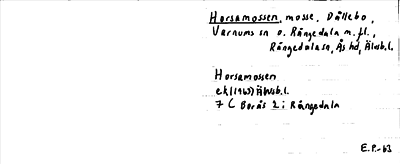 Horsamossen, mosse, Dållebo,
Varnums sn o. Rångedala m. fl.,
Rångedala sn, Ås hd, Älvsb. l.
Horsamossen
ek (1963) Älvsb. l.
7 C Borås 2 i Rångedala
E. P. -63